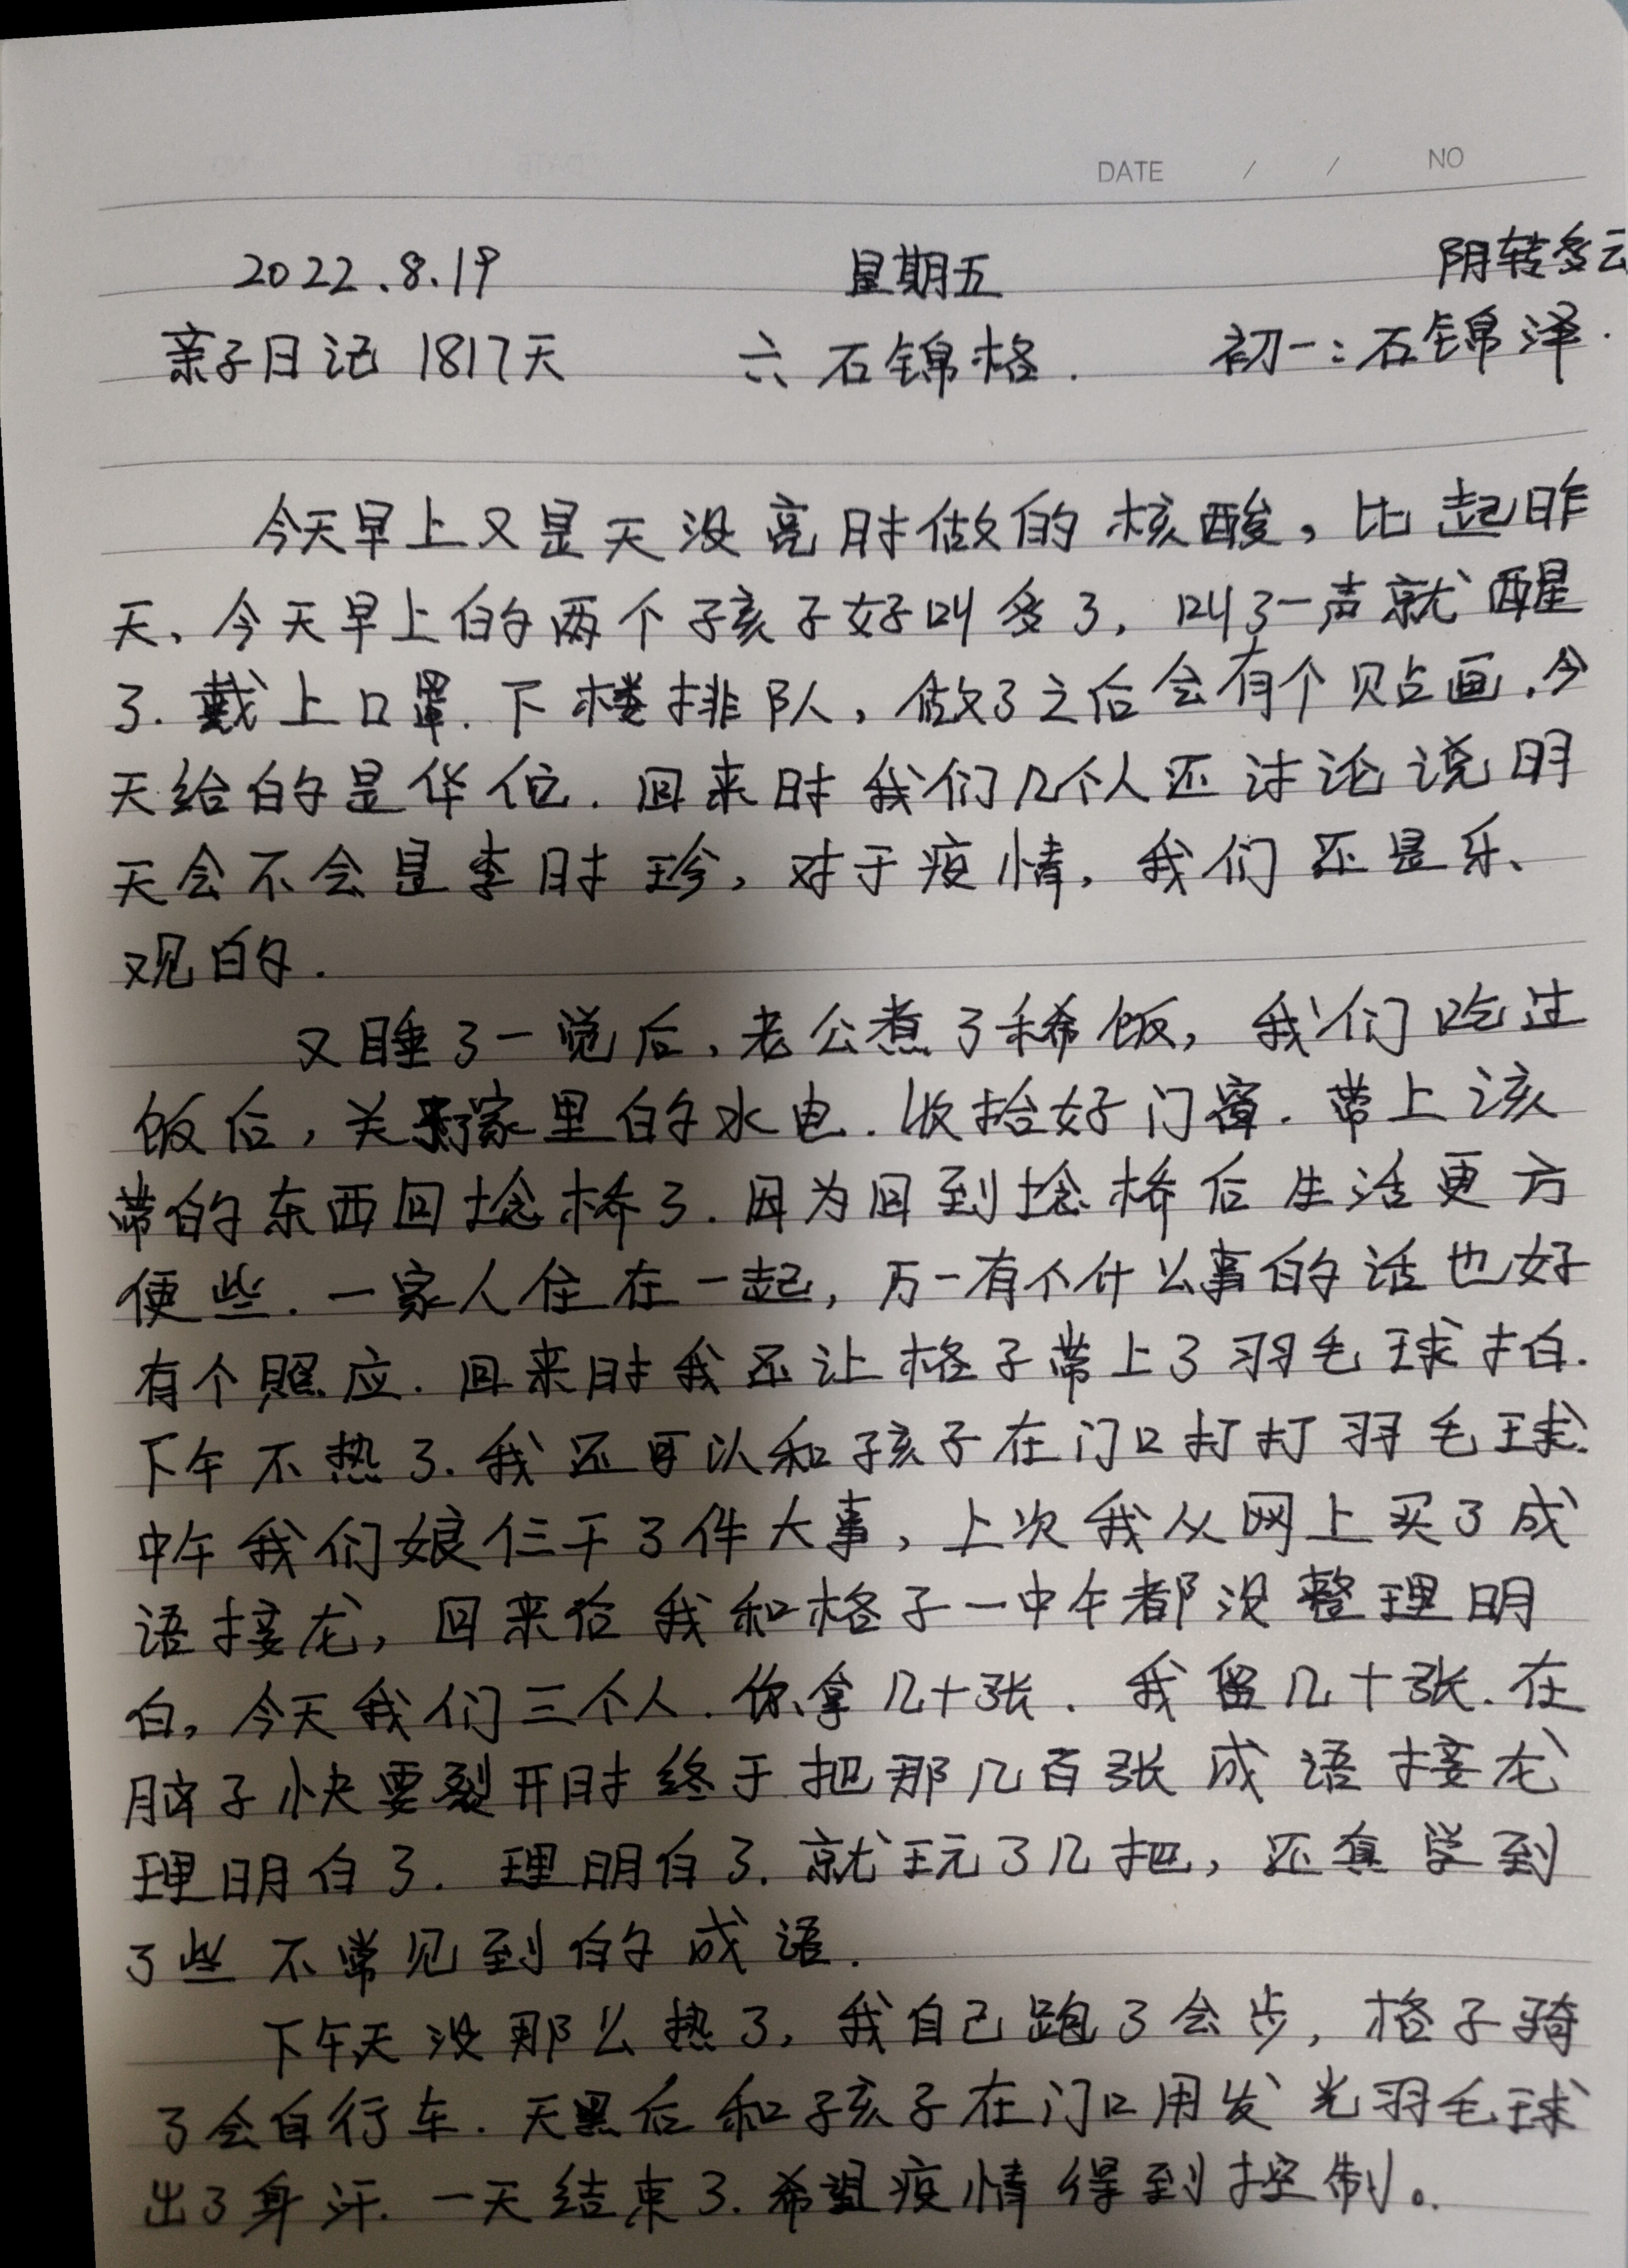 DATE / / NO
2022.8.19 星期五 阴转多云
亲子日记 1817天 六 石锦格. 初一:石锦泽.
今天早上又是天没亮时做的核酸,比起昨
天、今天早上的两个孩子好叫多了,叫了一声就醒
了.戴上口罩.下楼排队,做了之后会有个贴画.今
天给的是华佗.回来时我们几个人还讨论说明
天会不会是李时珍,对于疫情,我们还是乐、
观的.
又睡了一觉后,老公煮了稀饭,我们吃过
饭后,关好家里的水电.收拾好门窗.带上该
带的东西回捻桥了.因为回到捻桥后生活更方
便些.一家人住在一起,万一有个什么事的话也好
有个照应.回来时我还让格子带上了羽毛球拍.
下午不热了.我还可以和孩子在门口打打羽毛球.
中午我们娘仨干了件大事,上次我从网上买了成
语接龙,回来后我和格子一中午都没整理明
白,今天我们三个人.你拿几十张.我留几十张.在
脑子快要裂开时终于把那几百张成语接龙
理明白了.理明白了.就玩了几把,还真学到
了些不常见到的成语.
下午天没那么热了,我自己跑了会步,格子骑
了会自行车.天黑后和孩子在门口用发光羽毛球
出了身汗.一天结束了.希望疫情得到控制。